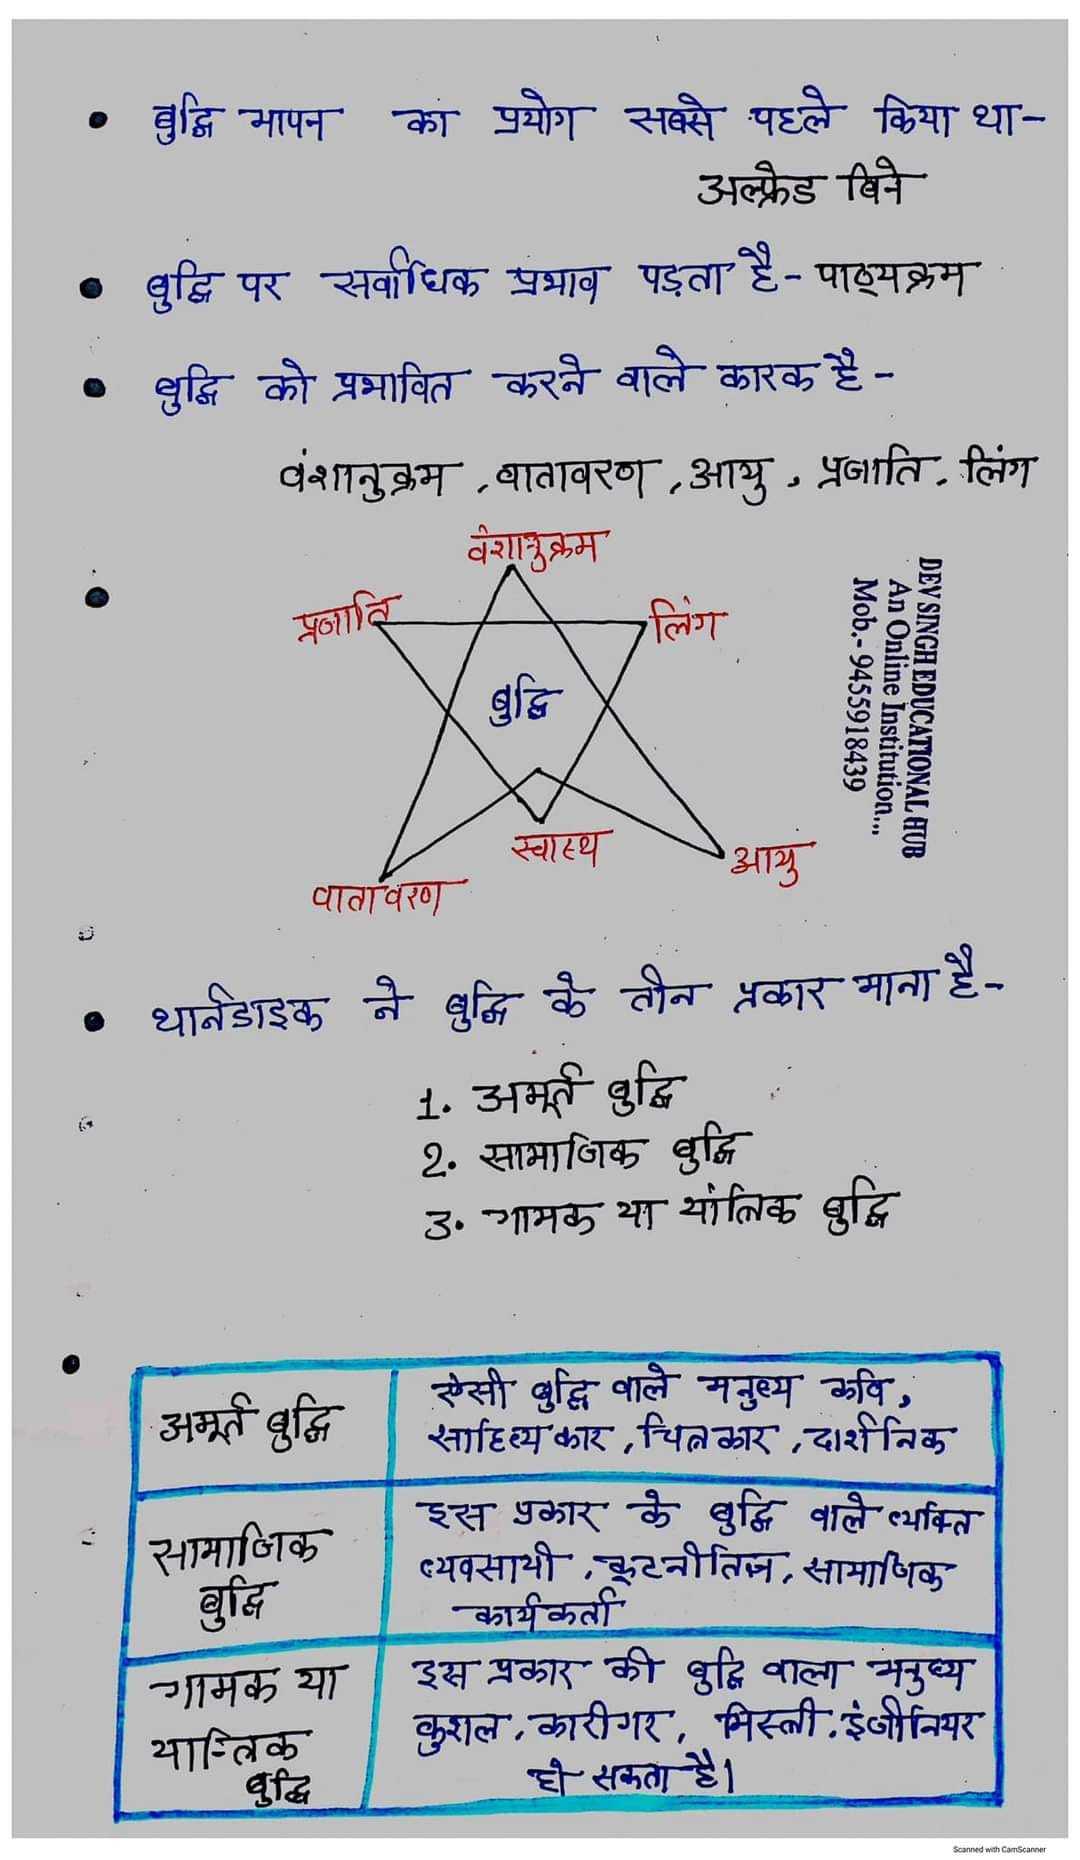 बुद्धि मापन का प्रयोग सबसे पहले किया था-
अल्फ्रेड बिने
बुद्धि पर सर्वाधिक प्रभाव पड़ता है- पाठ्यक्रम
बुद्धि को प्रभावित करने वाले कारक है-
वंशानुक्रम, वातावरण, आयु, प्रजाति, लिंग
वंशानुक्रम
प्रजाति
लिंग
बुद्धि
स्वास्थ
आयु
वातावरण
DEV SINGH EDUCATIONAL HUB
An Online Institution...
Mob.- 9455918439
थार्नडाइक ने बुद्धि के तीन प्रकार माना है-
1. अमूर्त बुद्धि
2. सामाजिक बुद्धि
3. गामक या यांत्रिक बुद्धि
अमूर्त बुद्धि
ऐसी बुद्धि वाले मनुष्य कवि,
साहित्यकार, चित्रकार, दार्शनिक
सामाजिक
बुद्धि
इस प्रकार के बुद्धि वाले व्यक्ति
व्यवसायी, कूटनीतिज्ञ, सामाजिक
कार्यकर्ता
गामक या
यान्त्रिक
बुद्धि
इस प्रकार की बुद्धि वाला मनुष्य
कुशल, कारीगर, मिस्त्री, इंजीनियर
हो सकता है।
Scanned with CamScanner